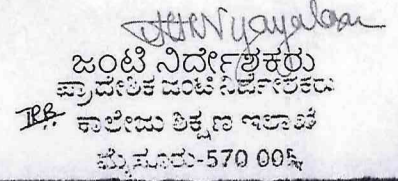 ಜಂಟಿ ನಿರ್ದೇಶಕರು
ಪ್ರಾದೇಶಿಕ ಜಂಟಿ ನಿರ್ದೇಶಕರು
ಕಾಲೇಜು ಶಿಕ್ಷಣ ಇಲಾಖೆ
ಮೈಸೂರು-570 005